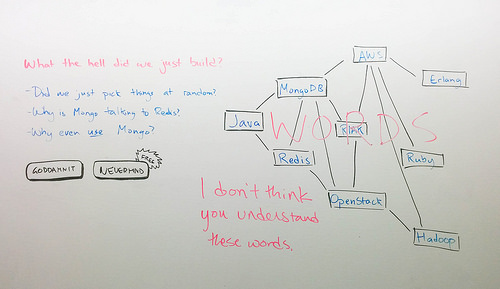 What the hell did we just build?
-Did we just pick things at random?
-Why is Mongo talking to Redis?
-Why even use Mongo?
GODDAMNIT
NEVERMIND
FREE
AWS
Erlang
MongoDB
Java
WORDS
RIAK
Redis
Ruby
OpenStack
Hadoop
I don't think
you understand
these words.